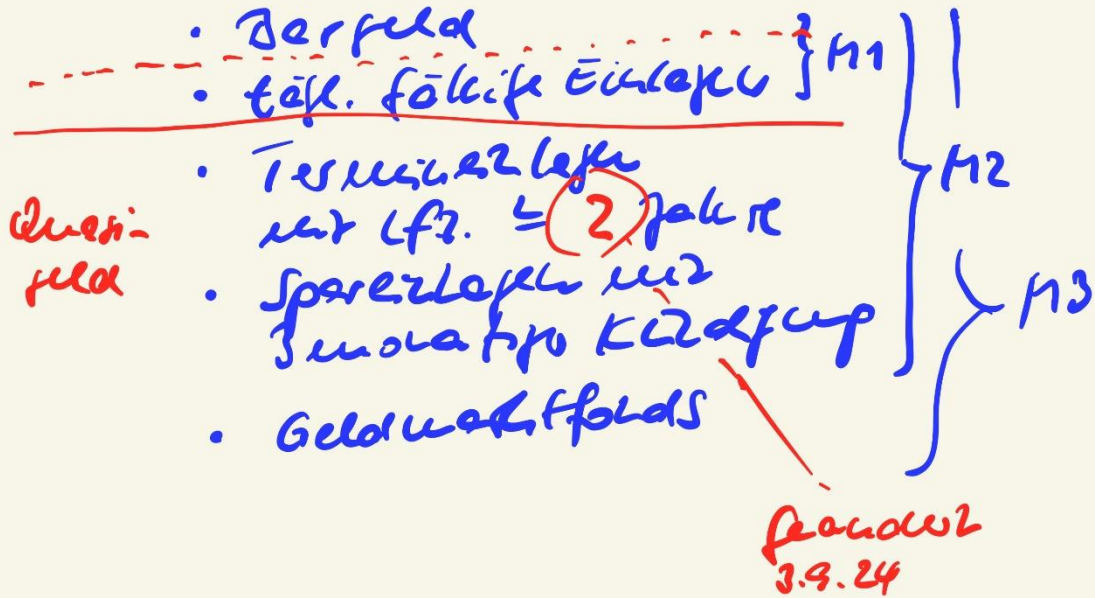 • Bargeld
• tägl. fällige Einlagen } M1
• Termineinlagen
mit Lfz. ≤ 2 Jahre
M2
Quasi-
geld
• Spareinlagen mit
3monatiger Kündigung
M3
• Geldmarktfonds
geändert
3.9.24